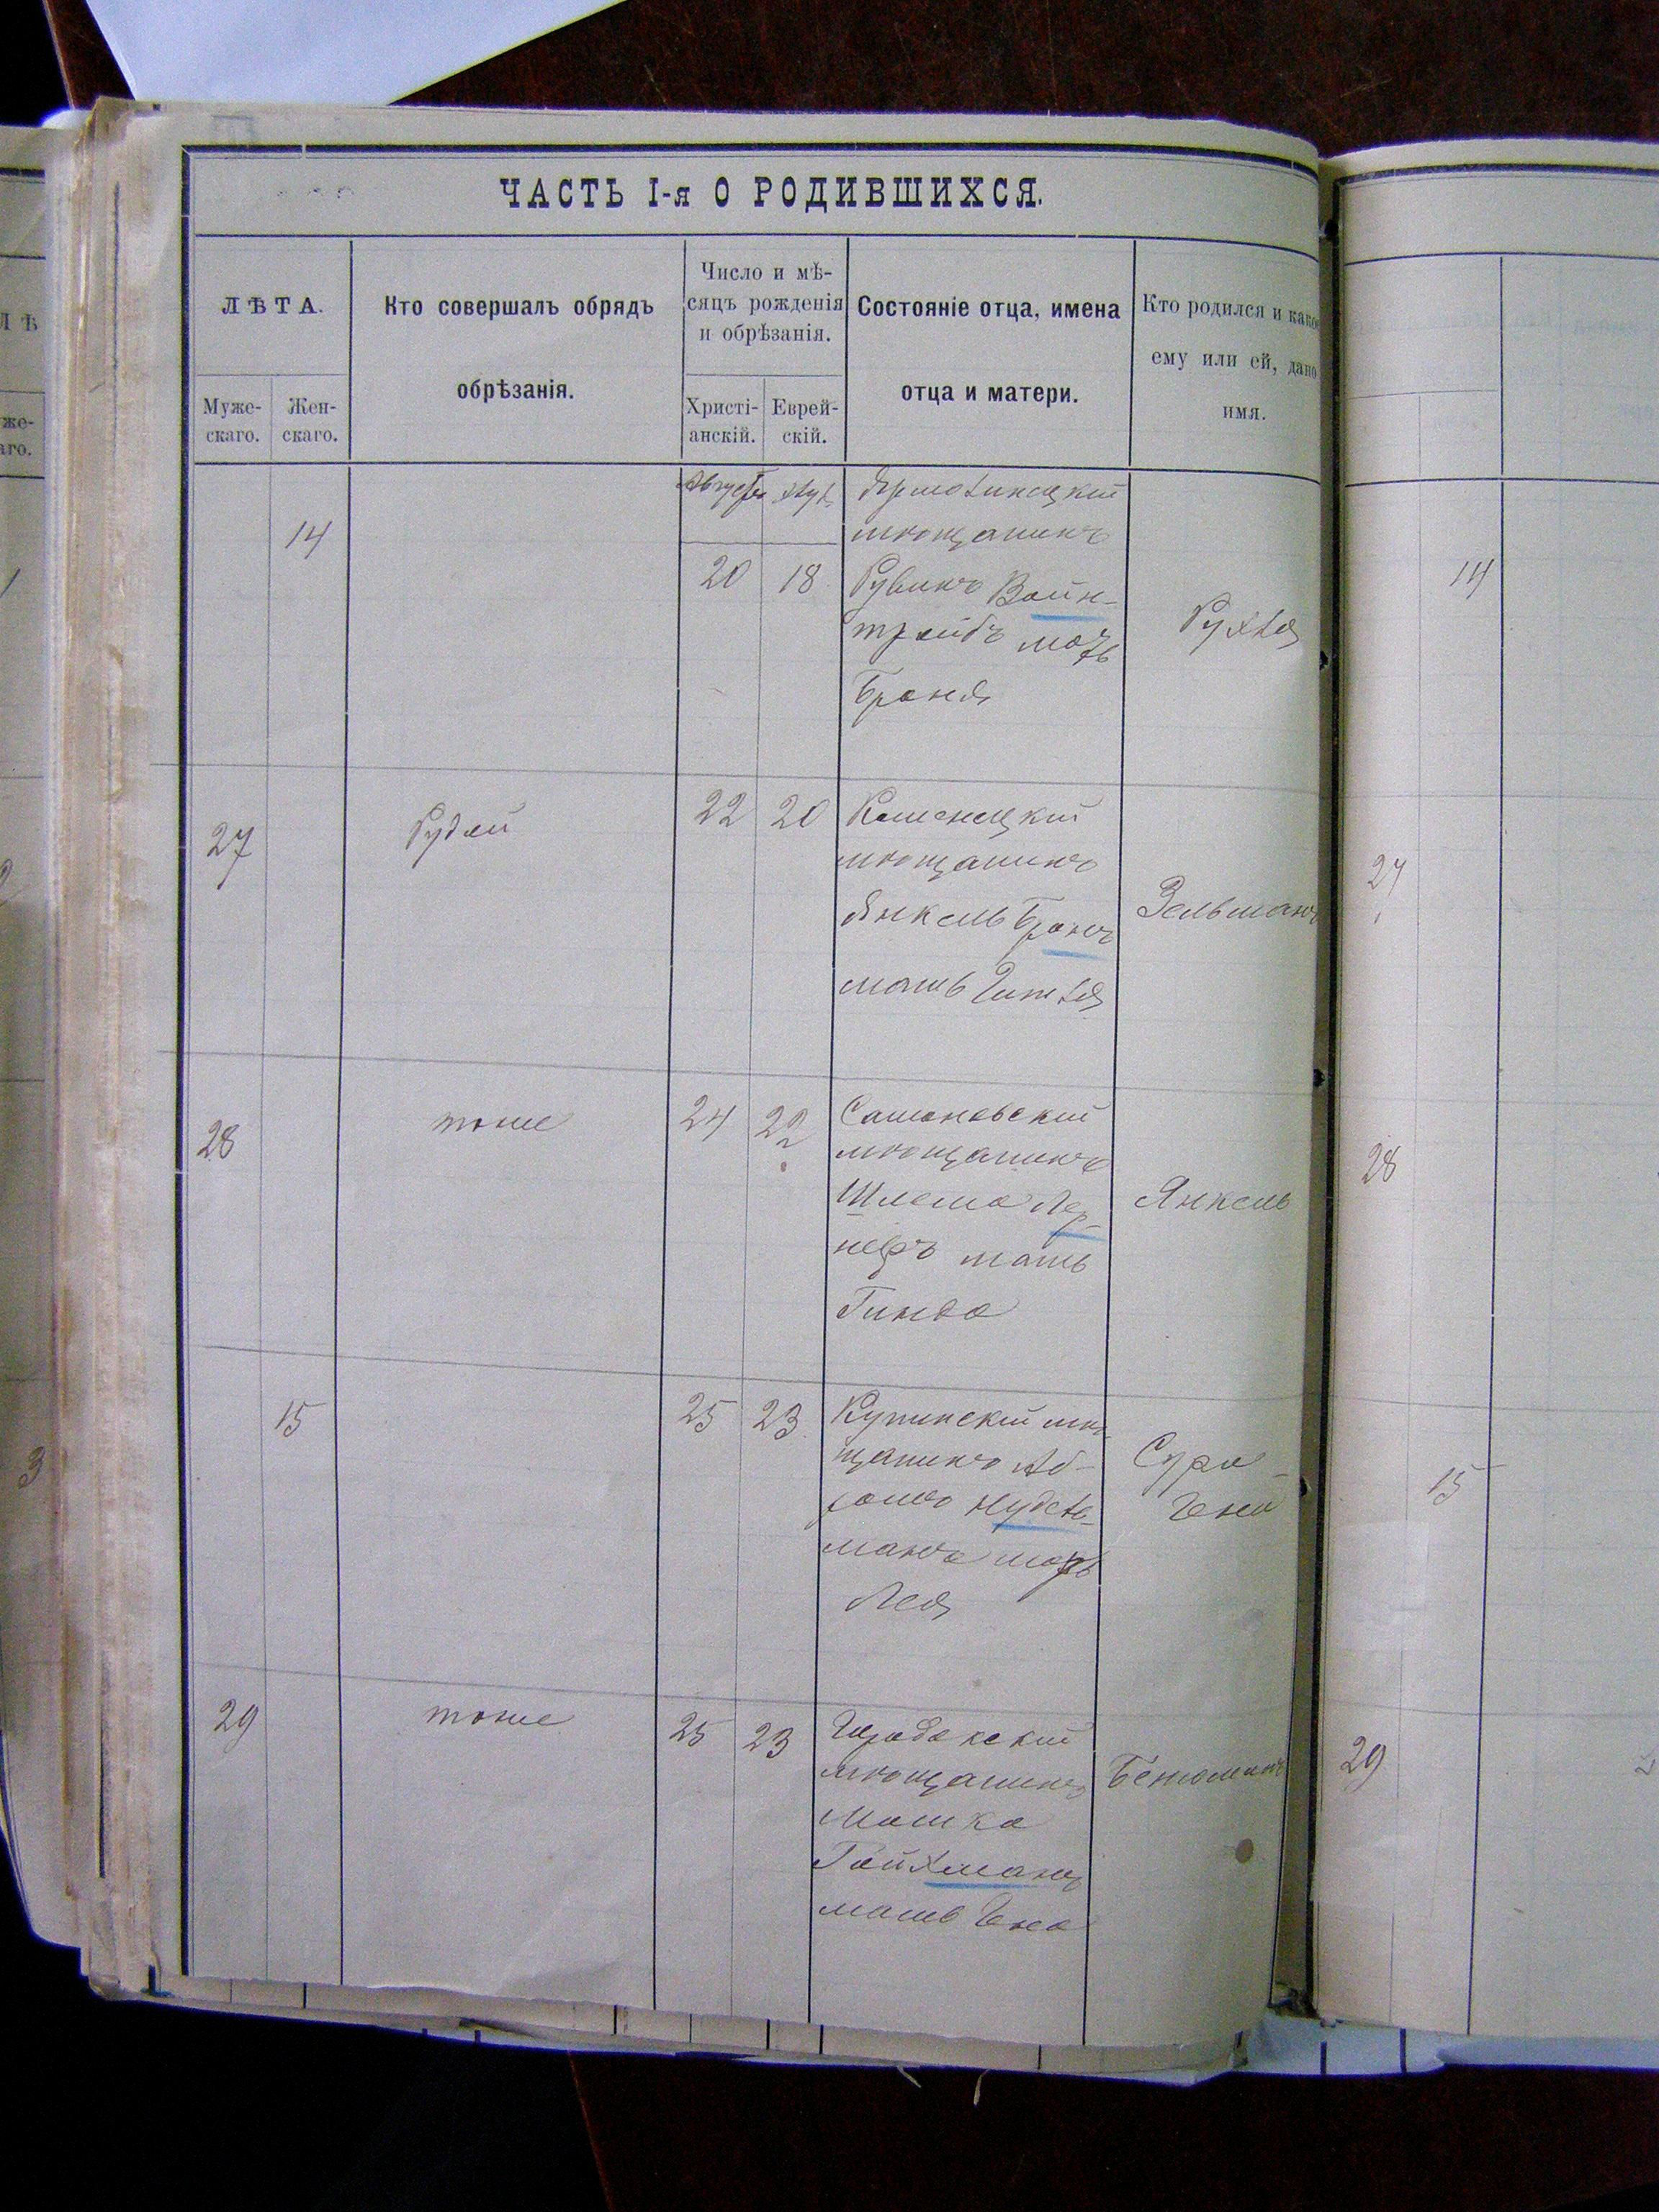 ЧАСТЬ I-я О РОДИВШИХСЯ.
ЛѢТА.
Муже-
скаго.
Жен-
скаго.
Кто совершалъ обрядъ
обрѣзанія.
Число и мѣ-
сяцъ рожденія
и обрѣзанія.
Христі-
анскій.
Еврей-
скій.
Состояніе отца, имена
отца и матери.
Кто родился и како
ему или ей, дано
имя.
14
Августа
20
18
Ярмолинецкій
мѣщанинъ
Рувинъ Вайн-
трайбъ мать
Браня
Рухля
27
Рудый
22
20
Каменецкій
мѣщанинъ
Янкель Бранъ
мать Гитля
Зельманъ
28
тоже
24
22
Сатановскій
мѣщанинъ
Шлема Лер-
неръ мать
Гинда
Янкель
15
25
23
Купинскій мѣ-
щанинъ Аб-
рамъ Нудель-
манъ мать
Лея
Сура-
Гена
29
тоже
25
23
Городокскій
мѣщанинъ
Мошко
Гойхманъ
мать Гена
Беньоминъ
ЛѢ
же-
аго.
3
14
27
28
15
29